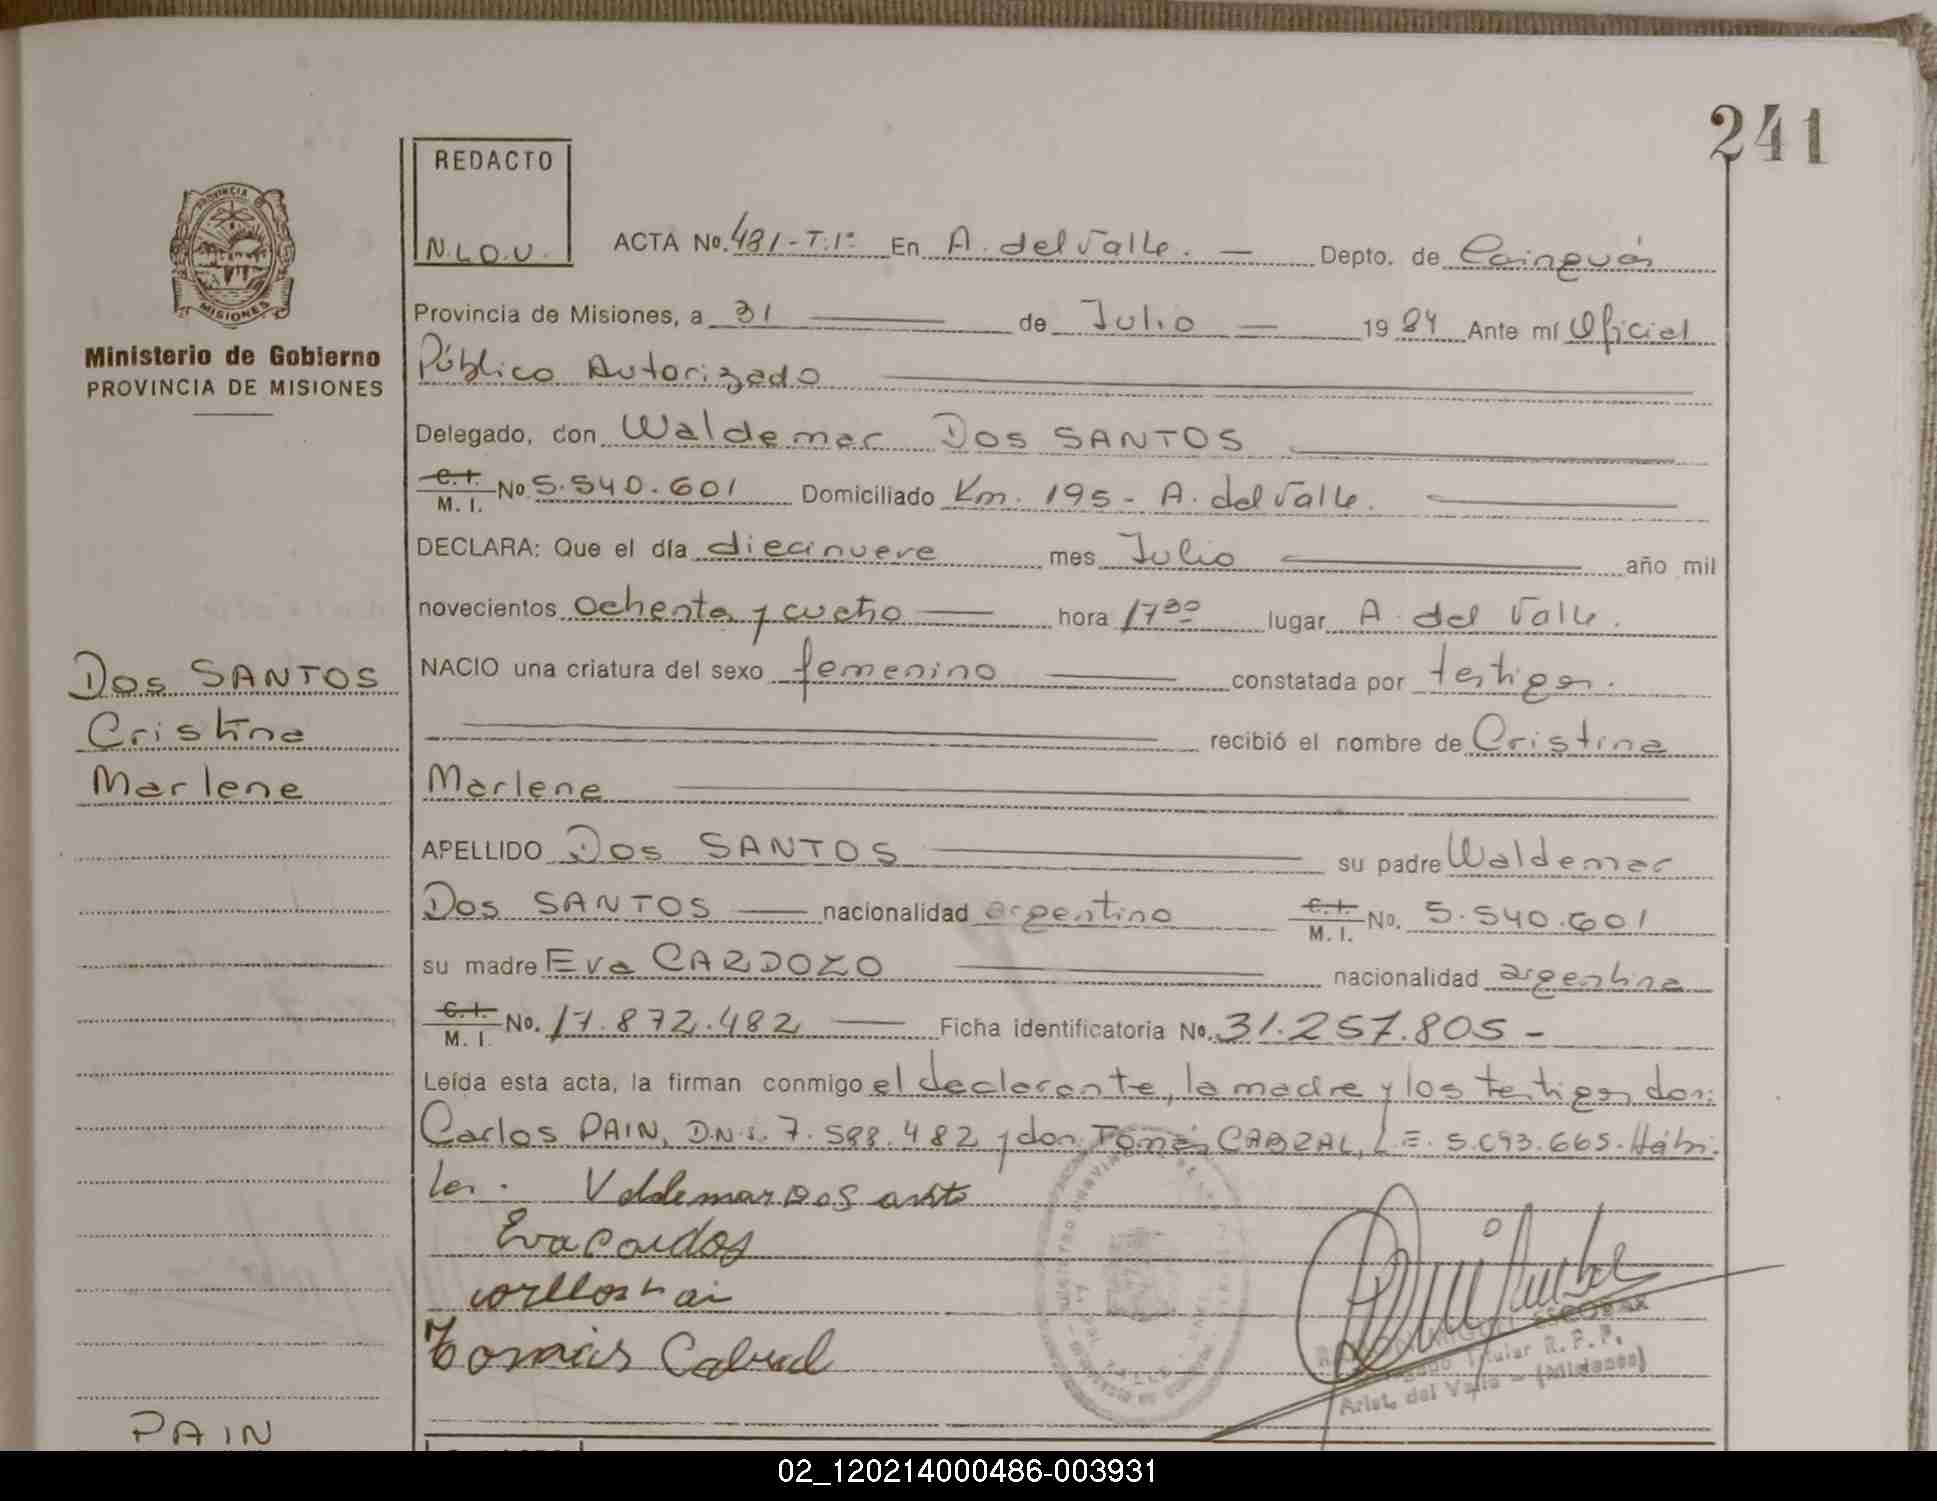 241
REDACTO
N.L.O.U.
PROVINCIA D
MISIONES
Ministerio de Gobierno
PROVINCIA DE MISIONES
ACTA No. 481-T:1º En A. del Valle. — Depto. de Cainguás
Provincia de Misiones, a 31 — de Julio — 19 84 Ante mí Oficial
Público Autorizado
Delegado, don Waldemar DOS SANTOS
C.I. / M. I. No. 5.540.601 Domiciliado Km. 195 - A. del Valle.
DECLARA: Que el día diecinueve mes Julio año mil
novecientos ochenta y cuatro hora 17 30 lugar A. del Valle.
NACIO una criatura del sexo femenino constatada por testigos.
recibió el nombre de Cristina
Marlene
APELLIDO DOS SANTOS su padre Waldemar
DOS SANTOS — nacionalidad argentino C.I. / M. I. No. 5.540.601
su madre Eva CARDOZO nacionalidad argentina
C.I. / M. I. No. 17.872.482 — Ficha identificatoria No. 31.257.805 -
Leída esta acta, la firman conmigo el declarante, la madre y los testigos don:
Carlos PAIN, D.N.I. 7.588.482 y don Tomás CABRAL, L.E. 5.093.665. Hábi-
les.
DOS SANTOS
Cristina
Marlene
Valdemar Dos
Eva
Tomás Cabral
ESCOBAR
Titular R. P. P.
Arist. del Valle - (Misiones)
PAIN
02_120214000486-003931